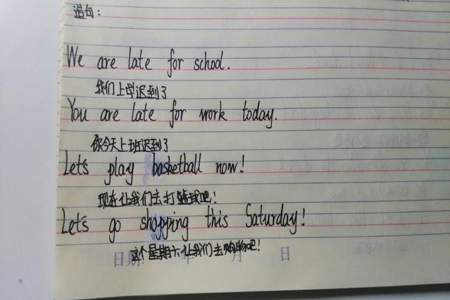 造句:
We are late for school.
我们上学迟到了
You are late for work today.
你今天上班迟到了
Let's play basketball now!
现在让我们去打篮球吧!
Let's go shopping this Saturday!
这个星期六让我们去购物吧!
日期 年 月 日